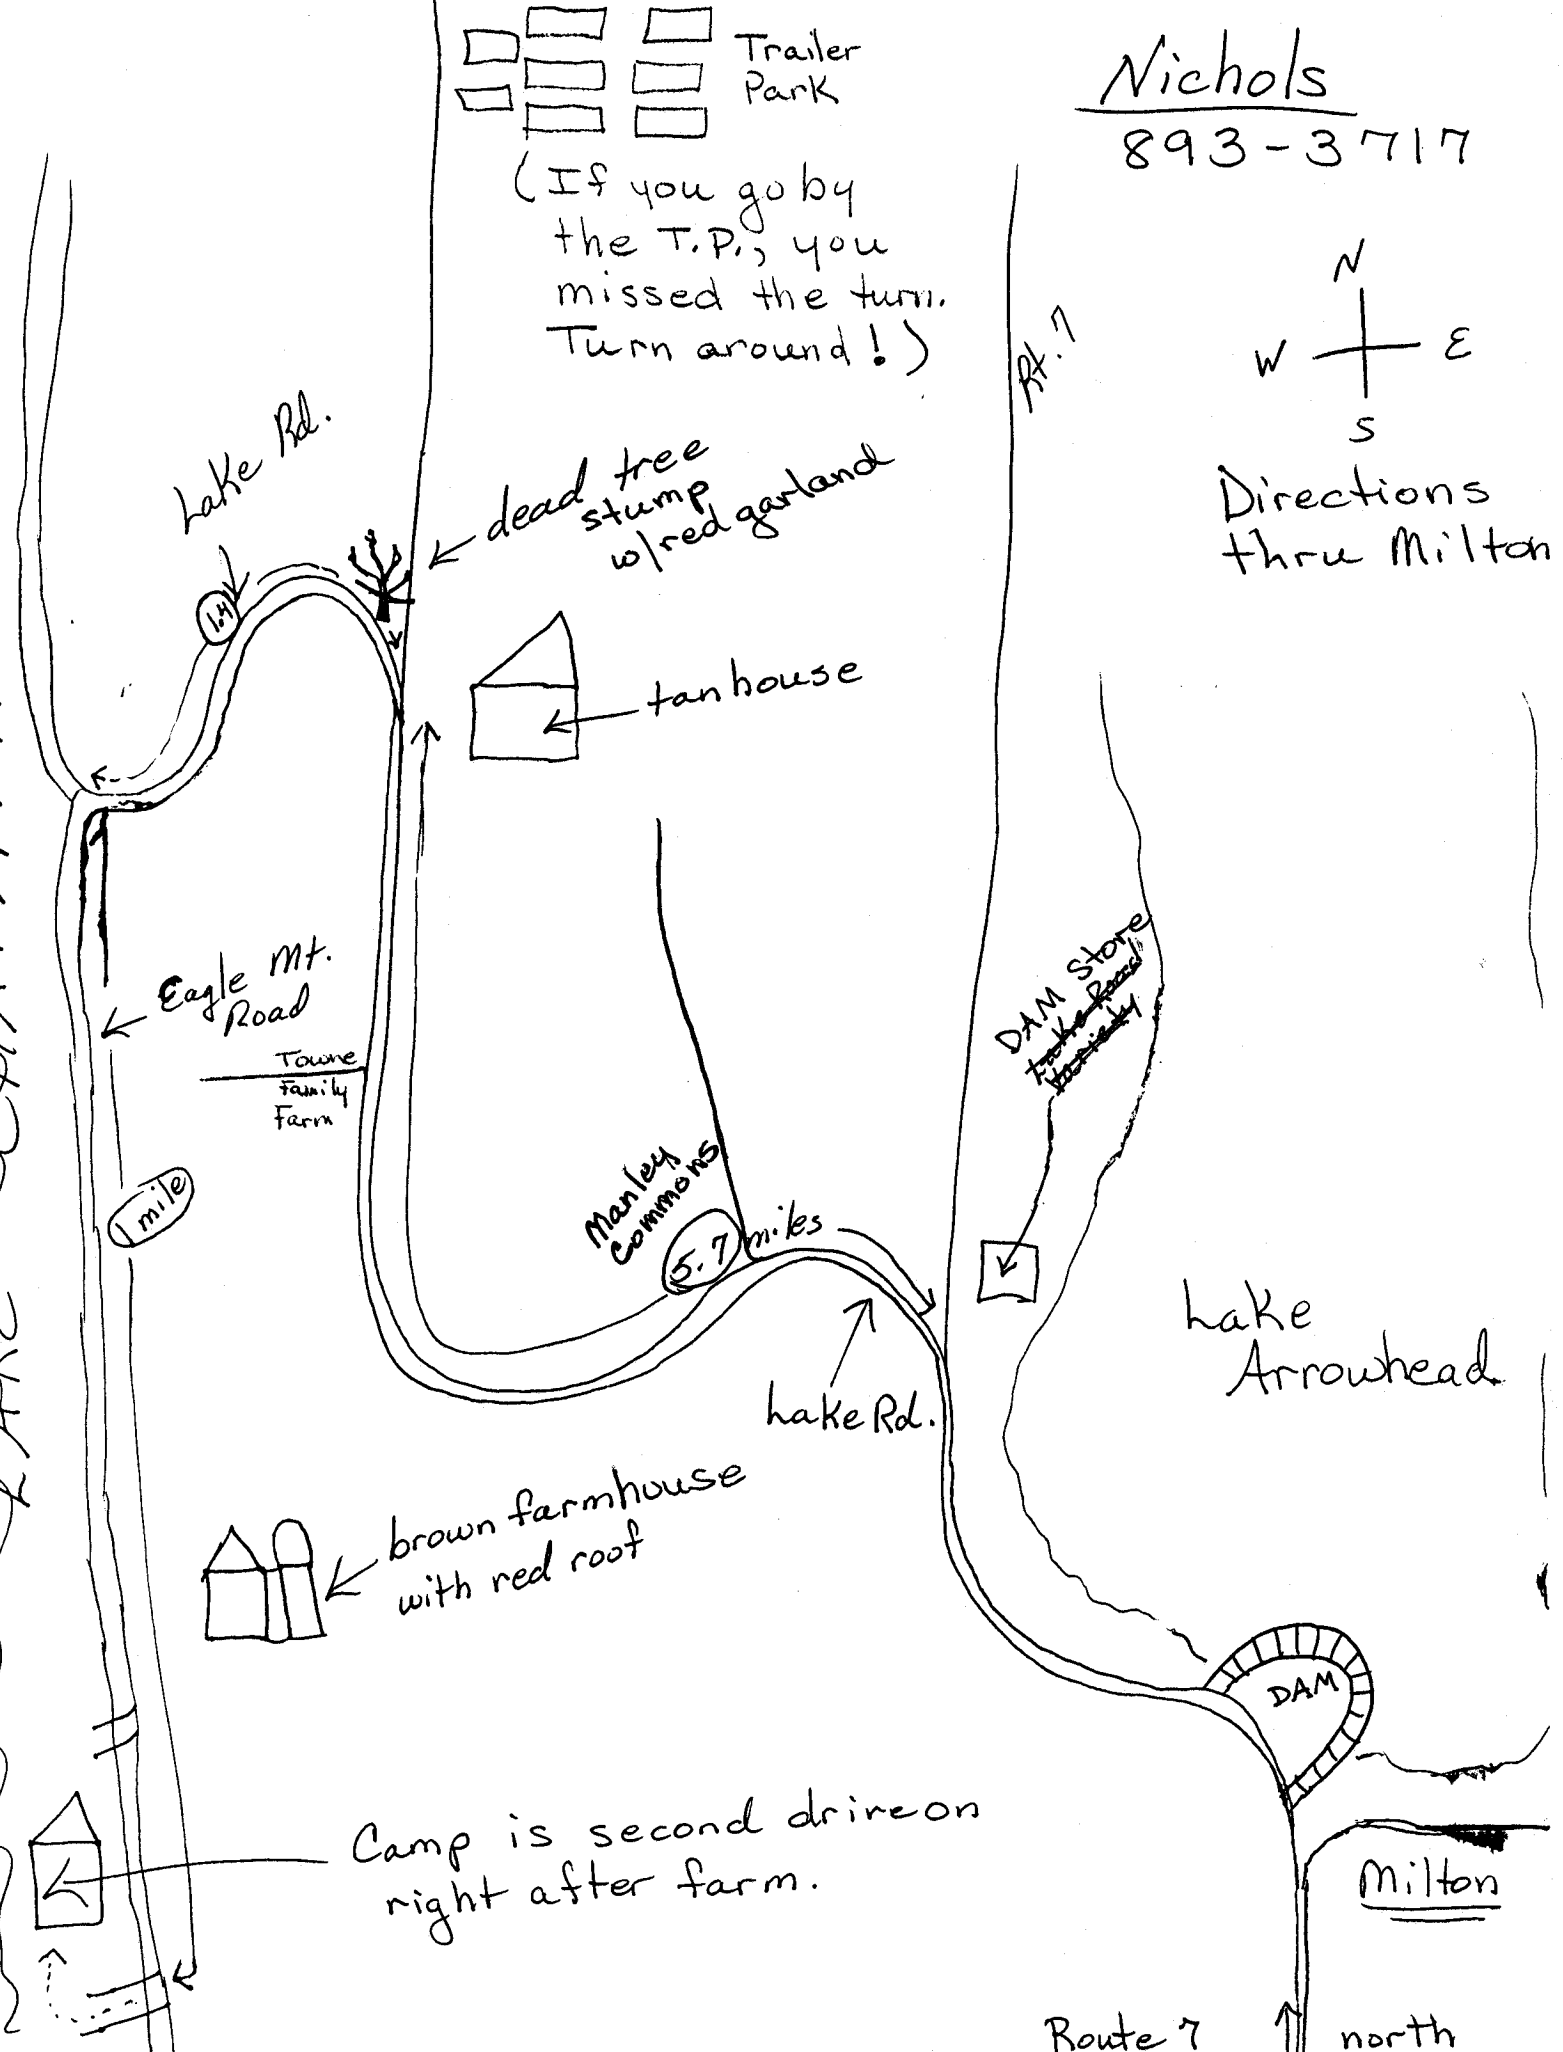 Nichols
893-3717
Trailer
Park
(If you go by
the T.P., you
missed the turn.
Turn around!)
N
W E
S
Directions
thru Milton
Rt. 7
Lake Rd.
dead tree
stump
w/red garland
1.4
tan house
DAM Store
Eagle Mt.
Road
Towne
Family
Farm
1 mile
Manley
Commons
5.7 miles
Lake Rd.
Lake
Arrowhead
brown farmhouse
with red roof
DAM
Camp is second drive on
right after farm.
Milton
Route 7 north